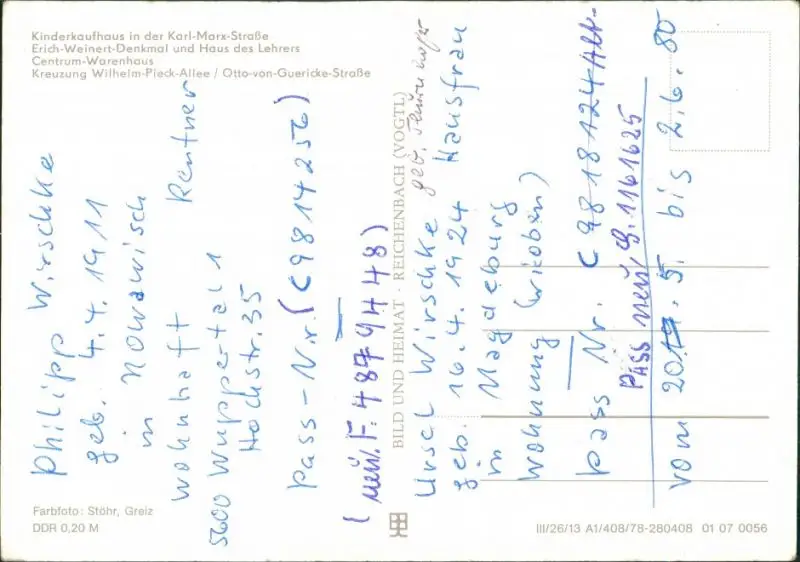 Kinderkaufhaus in der Karl-Marx-Straße
Erich-Weinert-Denkmal und Haus des Lehrers
Centrum-Warenhaus
Kreuzung Wilhelm-Pieck-Allee / Otto-von-Guericke-Straße
Philipp Wirschke
geb. 4.4.1911
in Nowawisch
wohnhaft Rentner
5600 Wuppertal 1
Hochstr. 35
Pass-Nr. (C9814256)
(neu F: 4879448)
BILD UND HEIMAT · REICHENBACH (VOGTL)
Ursel Wirschke geb.
geb. 16.4.1924 Hausfrau
in Magdeburg
Wohnung (w. oben)
pass Nr. C 9818124 Alt-
Pass neu, G. 1161625
vom 20. 5. bis 2.6.80
Farbfoto: Stöhr, Greiz
DDR 0,20 M
III/26/13 A1/408/78-280408 01 07 0056